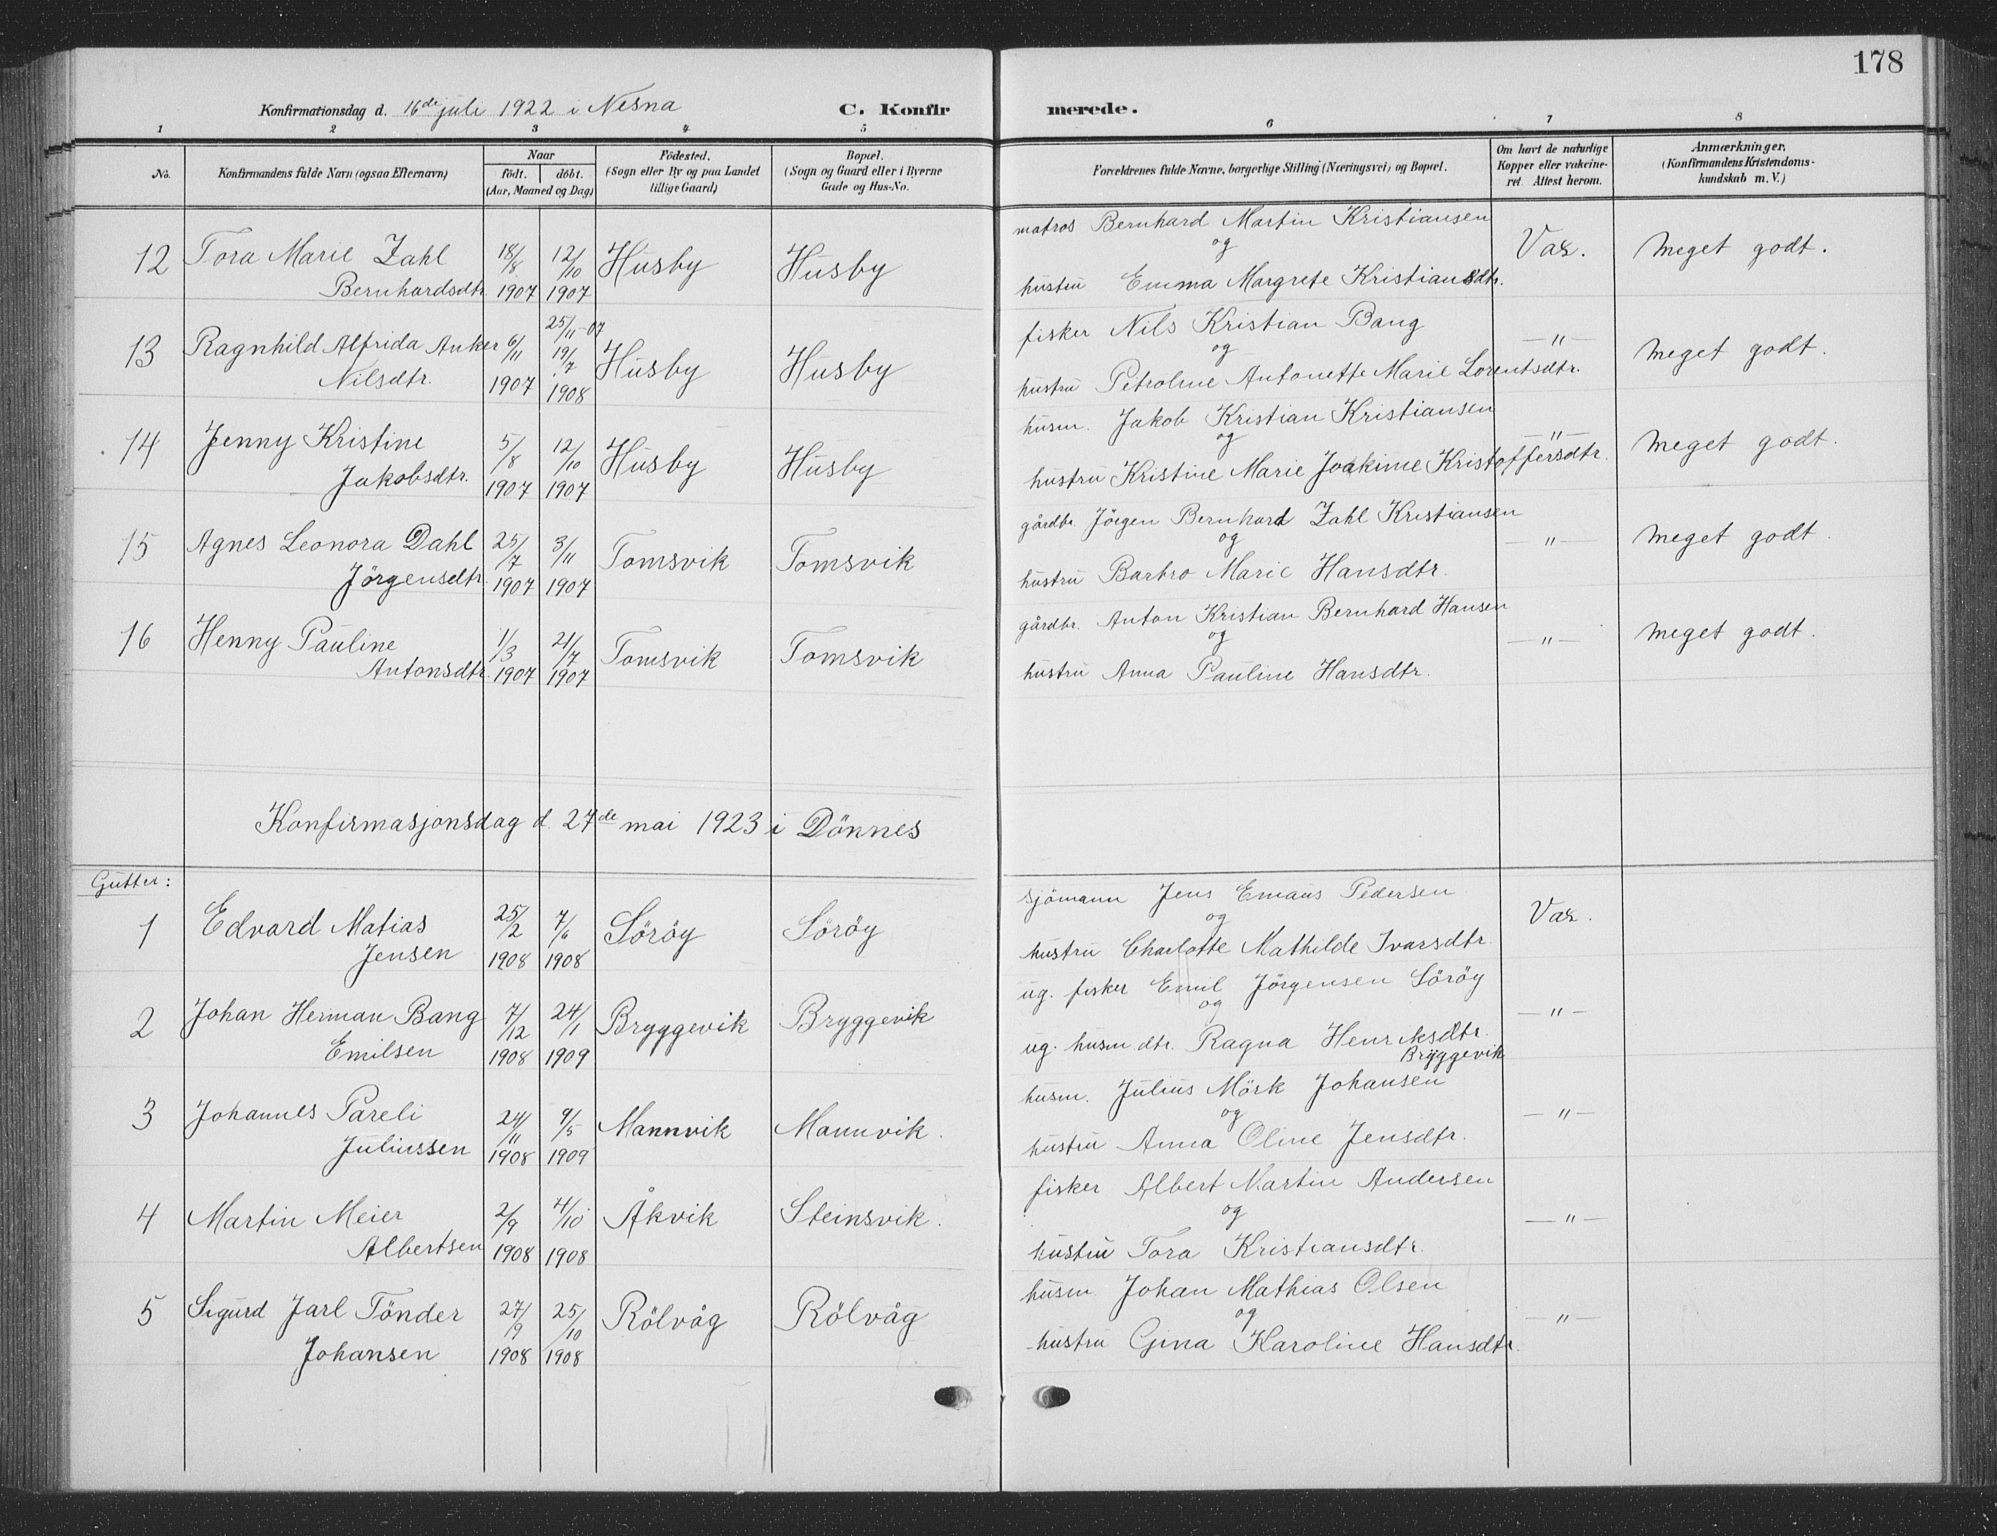 178
Konfirmationsdag d. 16de juli 1922 i Nesna C. Konfirmerede.
1 2 3 4 5 6 7 8
No. Konfirmandens fulde Navn (ogsaa Efternavn) Naar födt. döbt. (Aar, Maaned og Dag) Födested. (Sogn eller By og paa Landet tillige Gaard) Bopæl. (Sogn og Gaard eller i Byerne Gade og Hus-No. Forældrenes fulde Navne, borgerlige Stilling (Næringsvei) og Bopæl. Om havt de naturlige Kopper eller vakcineret. Attest herom. Anmærkninger. (Konfirmandens Kristendomskundskab m. V.)
12 Tora Marie Zahl 18/8 12/10 Husby Husby matros Bernhard Martin Kristiansen Vax. Meget godt.
og
Bernhardsdtr. 1907 1907 hustru Emma Margrete Kristiansdtr.
25/11-07
13 Ragnhild Alfrida Anker 6/11 19/7 Husby Husby fisker Nils Kristian Bang —"— Meget godt.
og
Nilsdtr. 1907 1908 hustru Petroline Antonette Marie Lorentsdtr.
14 Jenny Kristine 5/8 12/10 Husby Husby husm. Jakob Kristian Kristiansen —"— Meget godt.
og
Jakobsdtr. 1907 1907 hustru Kristine Marie Joakime Kristoffersdtr.
15 Agnes Leonora Dahl 25/7 3/11 Tomsvik Tomsvik gårdbr. Jörgen Bernhard Zahl Kristiansen —"— Meget godt.
og
Jörgensdtr. 1907 1907 hustru Barbro Marie Hansdtr.
16 Henny Pauline 1/3 21/7 Tomsvik Tomsvik gårdbr. Anton Kristian Bernhard Hansen —"— Meget godt.
og
Antonsdtr. 1907 1907 hustru Anna Pauline Hansdtr.
Konfirmasjonsdag d. 27de mai 1923 i Dönnes
Gutter:
1 Edvard Matias 25/2 7/6 Söröy Söröy sjömann Jens Emaus Pedersen Vax.
og
Jensen 1908 1908 hustru Charlotte Mathilde Ivarsdtr.
2 Johan Herman Bang 7/12 24/1 Bryggevik Bryggevik ug. fisker Emil Jörgensen Söröy —"—
og
Emilsen 1908 1909 ug. husm dtr. Ragna Henriksdtr.
Bryggevik
3 Johannes Pareli 24/11 9/5 Mannvik Mannvik. husm. Julius Mörk Johansen —"—
og
Juliussen 1908 1909 hustru Anna Oline Jensdtr.
4 Martin Meier 2/9 4/10 Åkvik Steinsvik. fisker Albert Martin Andersen —"—
og
Albertsen 1908 1908 hustru Tora Kristiansdtr.
5 Sigurd Jarl Tönder 27/9 25/10 Rölvåg Rölvåg husm. Johan Mathias Olsen —"—
og
Johansen 1908 1908 hustru Gina Karoline Hansdtr.